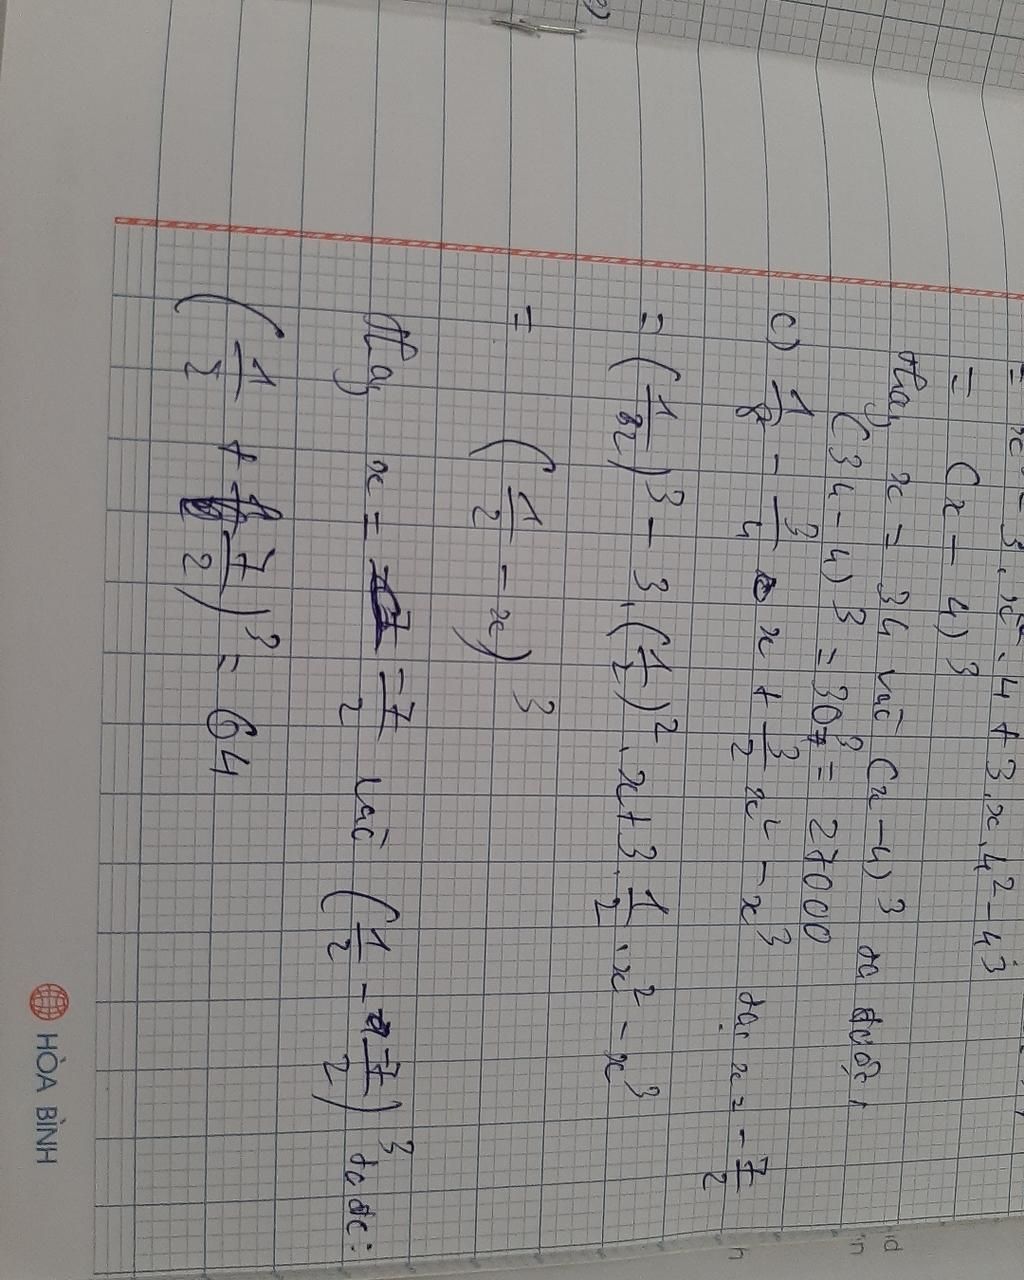 = x³ - 3.x².4 + 3.x.4² - 4³
= (x - 4)³
thay x = 34 vào (x - 4)³ ta được
(34 - 4)³ = 30³ = 27000
c) 1/8 - 3/4 x + 3/2 x² - x³ tại x = - 7/2
= (1/2)³ - 3.(1/2)².x + 3.1/2.x² - x³
= (1/2 - x)³
Thay x = -7/2 vào (1/2 - -7/2)³ ta đc:
(1/2 + 7/2)³ = 64
HÒA BÌNH